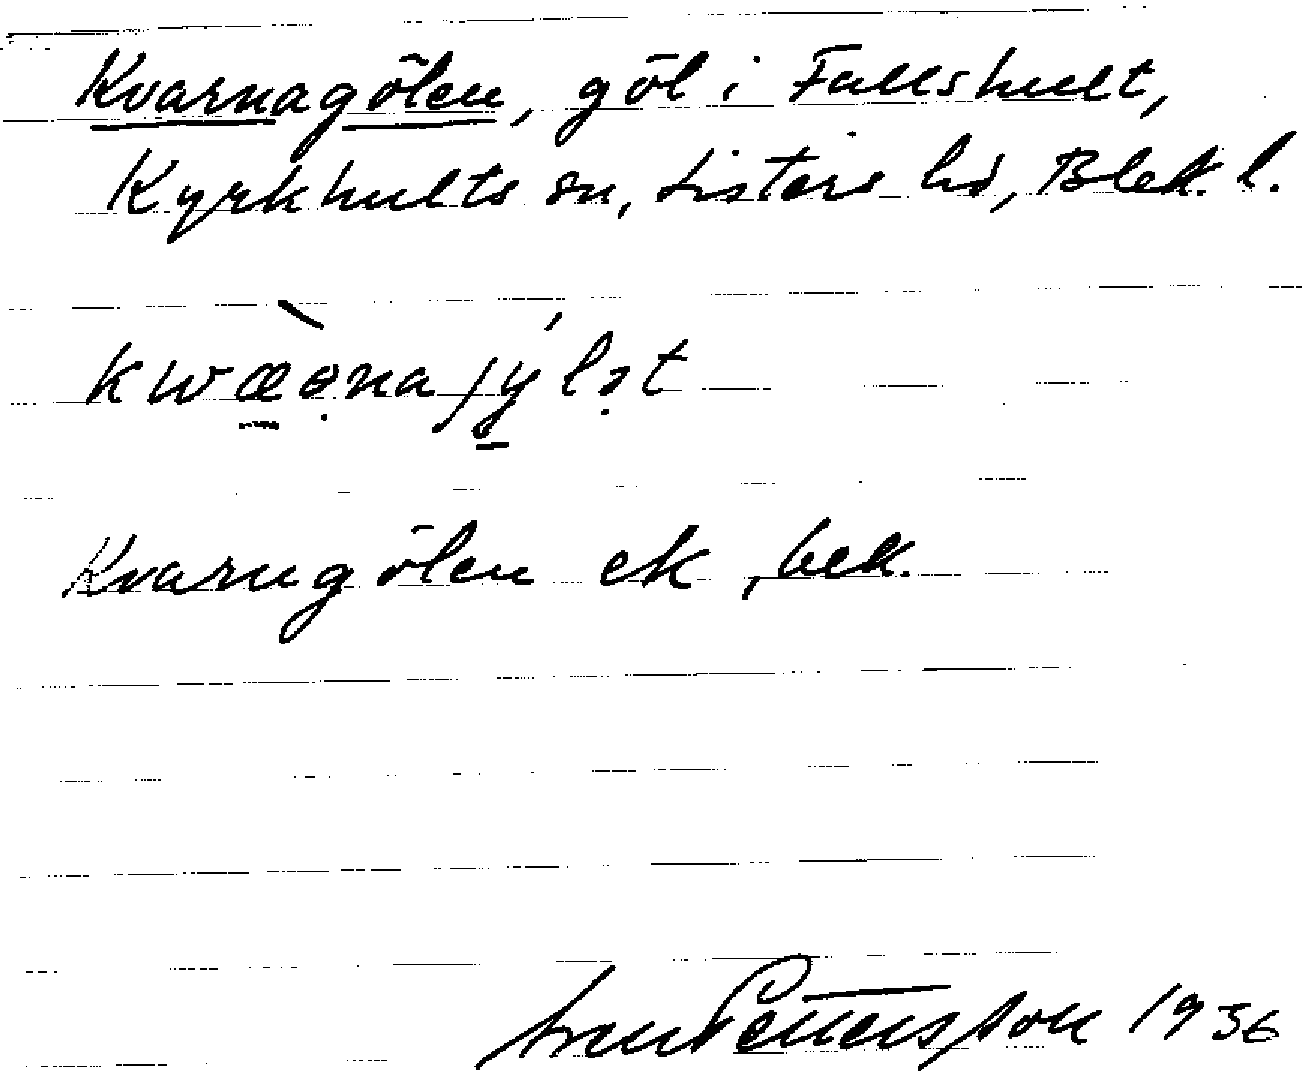 Kvarnagölen, göl i Fallshult,
Kyrkhults sn, Listers hd, Blek. l.
kwæ̀ənajýlət
Kvarngölen ek, bek.
Pettersson 1936